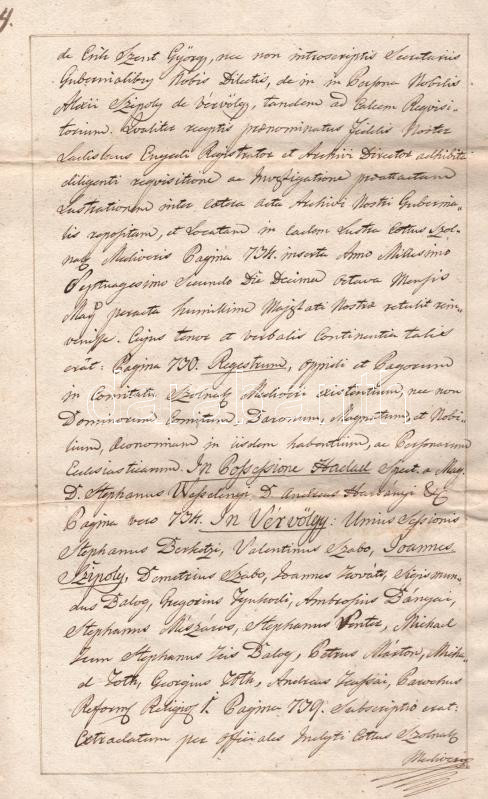 4.
de Csik Szent György, nec non introscriptis Secretariis
Gubernialibus Nobis Dilectis, de in in Persona Nobilis
Alexii Szipoly de Vérvölgy, tandem ad calcem Reqvisi-
torium. Qvaliter receptis praenominatus Fidelis Noster
Ladislaus Registrator et Archivi Director adhibita
diligenti reqvisitione ac Investigatione praattactam
Lustrationem inter caetera acta Archivi Nostri Gubernia-
lis repositam, et Locatam in eadem Lustra Cottus Szol-
nok Mediocris Pagina 734. inserta Anno Millesimo
Septuagesimo Secundo Die Decima Octava Mensis
Maji peracta humillime Majestati Nostrae retulit rein-
venisse. Cujus tenor et verbalis continentia talis
erat: Pagina 730. Regestrum, Oppidi et Pagorum
in Comitatu Szolnok Mediocri existentium, nec non
Dominorum Comitum, Baronum, Magnatum, et Nobi-
lium, Oeconomiam in iisdem habentium, ac Personarum
Ecclesiasticarum. In Possessione Hadad Spect. a Mag.
D. Stephanus Wesselenyi, D. Andreas Hadnagyi &c
Pagina vero 734. In Vérvölgy: Unius Sessionis
Stephanus Derkotzi, Valentinus Szabo, Joannes
Szipoly, Demetrius Szabo, Joannes Kováts, Sigismun-
dus Balog, Gregorius, Ambrosius Bányai,
Stephanus Mészáros, Stephanus Pinter, Michael
Stephanus Kis Balog, Petrus Márton, Micha-
el Toth, Georgius Toth, Andreas Kassai, Parochus
Reform. Religios. 1. Pagina 739. Subscriptio erat:
Extradatum per officiales Inclyti Cottus Szolnok
Mediocris